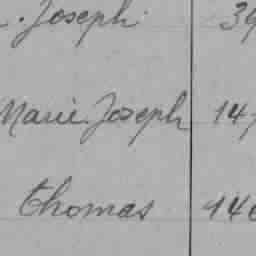 Joseph 39
Marie Joseph 147
Thomas 146